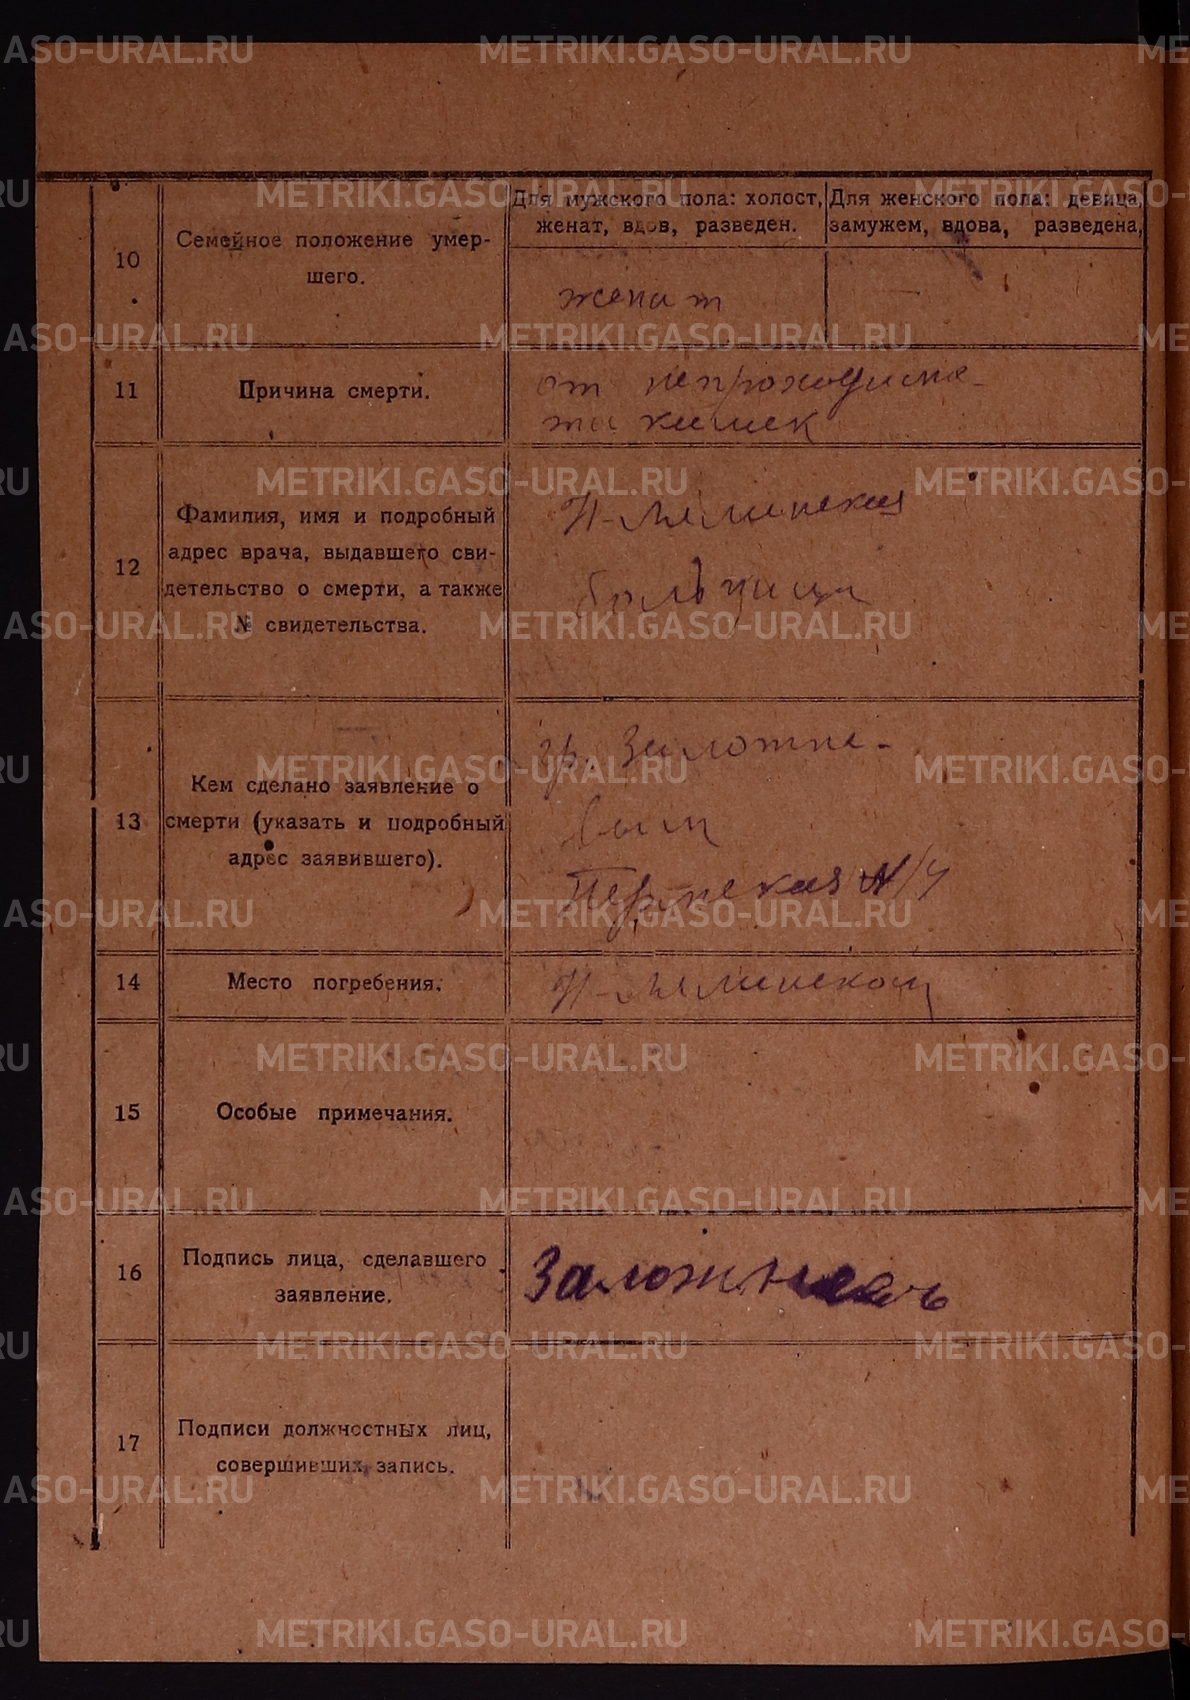 Для мужского пола: холост, женат, вдов, разведен.
Для женского пола: девица, замужем, вдова, разведена,
10
Семейное положение умер-
шего.
женат
—
11
Причина смерти.
от непроходимо-
ти кишек
12
Фамилия, имя и подробный
адрес врача, выдавшего сви-
детельство о смерти, а также
№ свидетельства.
Н-Лялинская
больница
13
Кем сделано заявление о
смерти (указать и подробный
адрес заявившего).
гр. Заложне-
вым
Пермская
14
Место погребения.
Н-Лялинском
15
Особые примечания.
16
Подпись лица, сделавшего
заявление.
17
Подписи должностных лиц,
совершивших запись.
METRIKI.GASO-URAL.RU